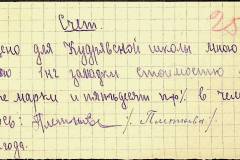 Счет.
25
дено для Кудрявской школы мною
1 кг заподки стоимостью
е марки и пятьдесят пф% в чем
сь: Плетнева /. Плетнева/
года.